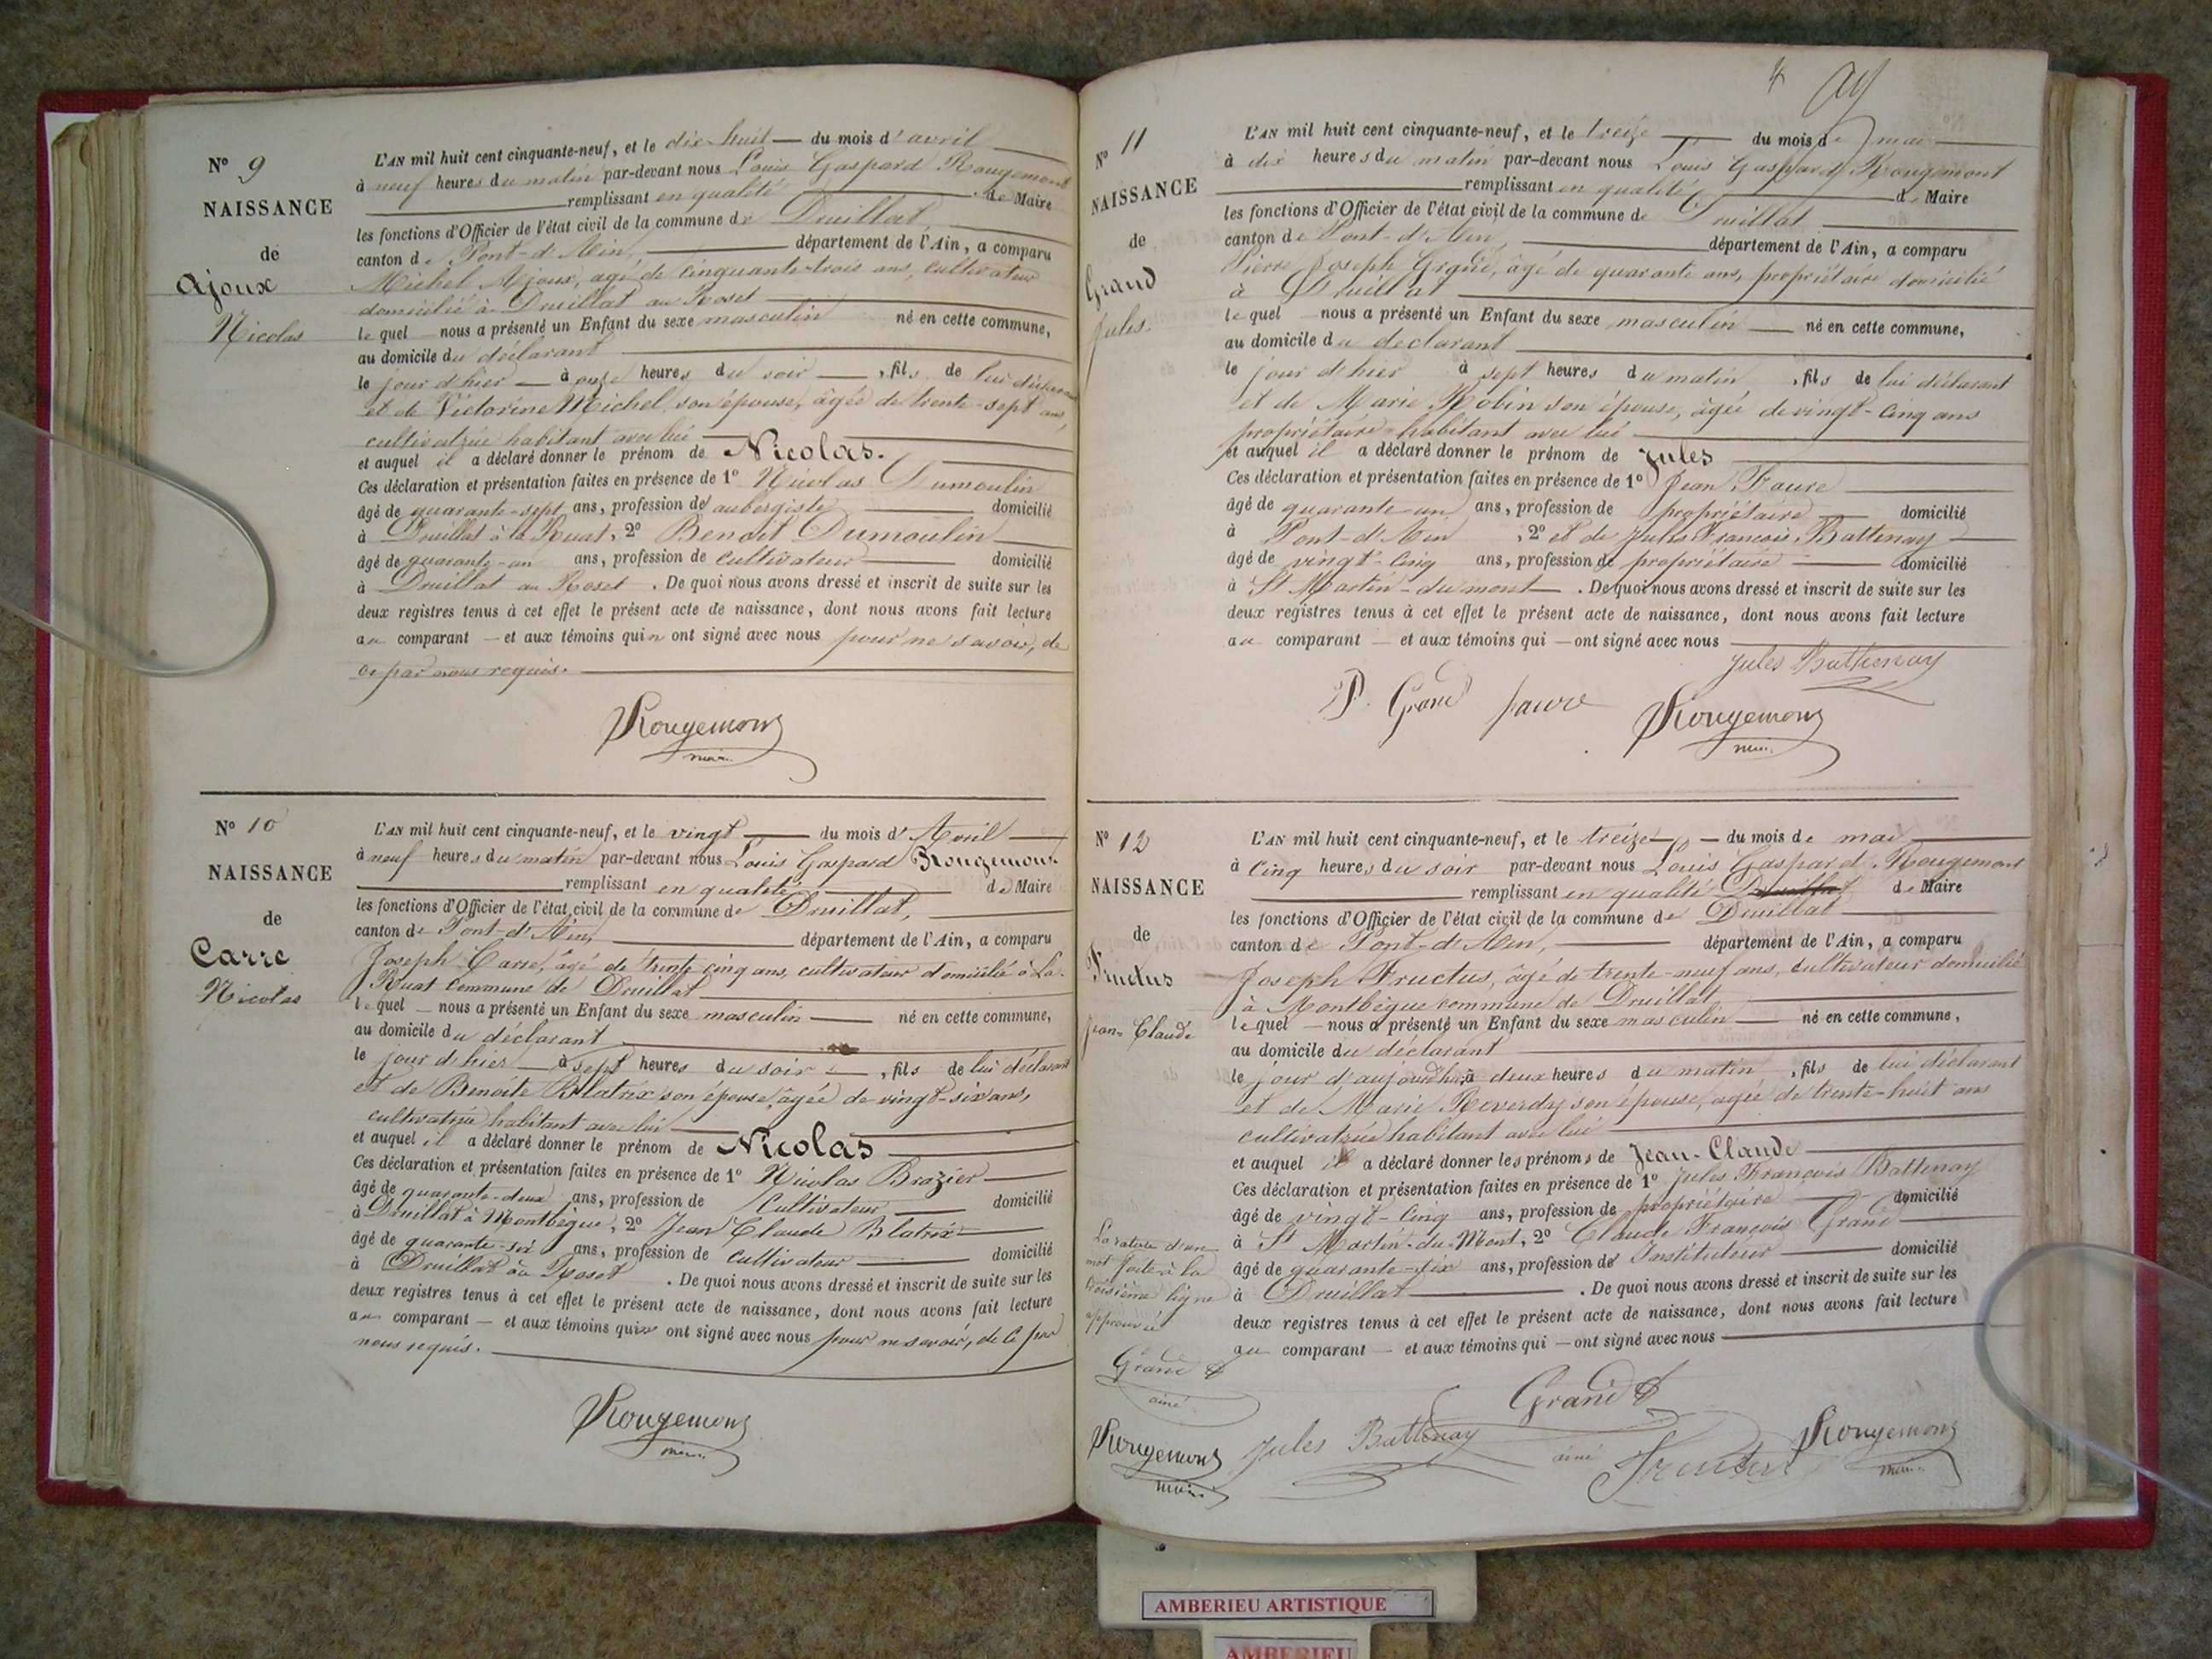 N° 9
NAISSANCE
de
Ajoux
Nicolas
L'AN mil huit cent cinquante-neuf, et le dix-huit — du mois d'avril
à neuf heures du matin par-devant nous Louis Gaspard Rougemont
remplissant en qualité de Maire
les fonctions d'Officier de l'état civil de la commune de Druillat,
canton de Pont-d'Ain, département de l'Ain, a comparu
Michel Ajoux, âgé de cinquante-trois ans, cultivateur
domicilié à Druillat au Roset
lequel nous a présenté un Enfant du sexe masculin né en cette commune,
au domicile du déclarant
le jour d'hier — à onze heures du soir —, fils de lui déclarant
et de Victorine Michel son épouse, âgée de trente-sept ans,
cultivatrice habitant avec lui
et auquel il a déclaré donner le prénom de Nicolas.
Ces déclaration et présentation faites en présence de 1° Nicolas Dumoulin
âgé de quarante-sept ans, profession de aubergiste domicilié
à Druillat à la Ruat, 2° Benoit Dumoulin
âgé de quarante-un ans, profession de cultivateur domicilié
à Druillat au Roset. De quoi nous avons dressé et inscrit de suite sur les
deux registres tenus à cet effet le présent acte de naissance, dont nous avons fait lecture
au comparant — et aux témoins qui n'ont signé avec nous pour ne savoir, de
ce par nous requis.
Rougemont
maire
N° 10
NAISSANCE
de
Carre
Nicolas
L'AN mil huit cent cinquante-neuf, et le vingt — du mois d'Avril
à neuf heures du matin par-devant nous Louis Gaspard Rougemont
remplissant en qualité de Maire
les fonctions d'Officier de l'état civil de la commune de Druillat,
canton de Pont-d'Ain, département de l'Ain, a comparu
Joseph Carre, âgé de trente cinq ans, cultivateur domicilié à La
Ruat commune de Druillat
lequel — nous a présenté un Enfant du sexe masculin — né en cette commune,
au domicile du déclarant
le jour d'hier — à sept heures du soir —, fils de lui déclarant
et de Benoite Blatrix son épouse, âgée de vingt-six ans,
cultivatrice habitant avec lui
et auquel il a déclaré donner le prénom de Nicolas
Ces déclaration et présentation faites en présence de 1° Nicolas Brazier
âgé de quarante-deux ans, profession de Cultivateur domicilié
à Druillat à Montbègue, 2° Jean Claude Blatrix
âgé de quarante-six ans, profession de cultivateur domicilié
à Druillat au Roset. De quoi nous avons dressé et inscrit de suite sur les
deux registres tenus à cet effet le présent acte de naissance, dont nous avons fait lecture
au comparant — et aux témoins qui n'ont signé avec nous pour ne savoir, de ce par
nous requis.
Rougemont
maire
4
N° 11
NAISSANCE
de
Grand
Jules
L'AN mil huit cent cinquante-neuf, et le treize — du mois de mai
à dix heures du matin par-devant nous Louis Gaspard Rougemont
remplissant en qualité de Maire
les fonctions d'Officier de l'état civil de la commune de Druillat
canton de Pont-d'Ain, département de l'Ain, a comparu
Pierre Joseph âgé de quarante ans, propriétaire domicilié
à Druillat
lequel nous a présenté un Enfant du sexe masculin — né en cette commune,
au domicile du déclarant
le jour d'hier à sept heures du matin, fils de lui déclarant
et de Marie Robin son épouse, âgée de vingt-cinq ans
propriétaire habitant avec lui
et auquel il a déclaré donner le prénom de Jules
Ces déclaration et présentation faites en présence de 1° Jean Faure
âgé de quarante-un ans, profession de propriétaire domicilié
à Pont-d'Ain, 2° et de Jules François Battenay
âgé de vingt-cinq ans, profession de propriétaire domicilié
à St Martin-du-mont. De quoi nous avons dressé et inscrit de suite sur les
deux registres tenus à cet effet le présent acte de naissance, dont nous avons fait lecture
au comparant — et aux témoins qui — ont signé avec nous
Jules Battenay
P. Grand faure Rougemont
maire
N° 12
NAISSANCE
de
Fructus
Jean-Claude
L'AN mil huit cent cinquante-neuf, et le treize — du mois de mai
à cinq heures du soir par-devant nous Louis Gaspard Rougemont
remplissant en qualité Druillat de Maire
les fonctions d'Officier de l'état civil de la commune de Druillat
canton de Pont-d'Ain, département de l'Ain, a comparu
Joseph Fructus, âgé de trente-neuf ans, cultivateur domicilié
à Montbègue commune de Druillat
lequel — nous a présenté un Enfant du sexe masculin — né en cette commune,
au domicile du déclarant
le jour d'aujourd'hui, à deux heures du matin, fils de lui déclarant
et de Marie Reverdy son épouse, âgée de trente-huit ans
cultivatrice habitant avec lui
et auquel il a déclaré donner les prénoms de Jean-Claude
Ces déclaration et présentation faites en présence de 1° Jules François Battenay
âgé de vingt-cinq ans, profession de propriétaire domicilié
à St Martin-du-Mont, 2° Claude François Grand
âgé de quarante-six ans, profession de Instituteur domicilié
à Druillat. De quoi nous avons dressé et inscrit de suite sur les
deux registres tenus à cet effet le présent acte de naissance, dont nous avons fait lecture
au comparant — et aux témoins qui — ont signé avec nous
La rature d'un
mot faite à la
troisième ligne
approuvée
Grand
ainé
Rougemont
maire
Jules Battenay
Grand
ainé
Fructus
Rougemont
maire
AMBERIEU ARTISTIQUE
AMBERIEU